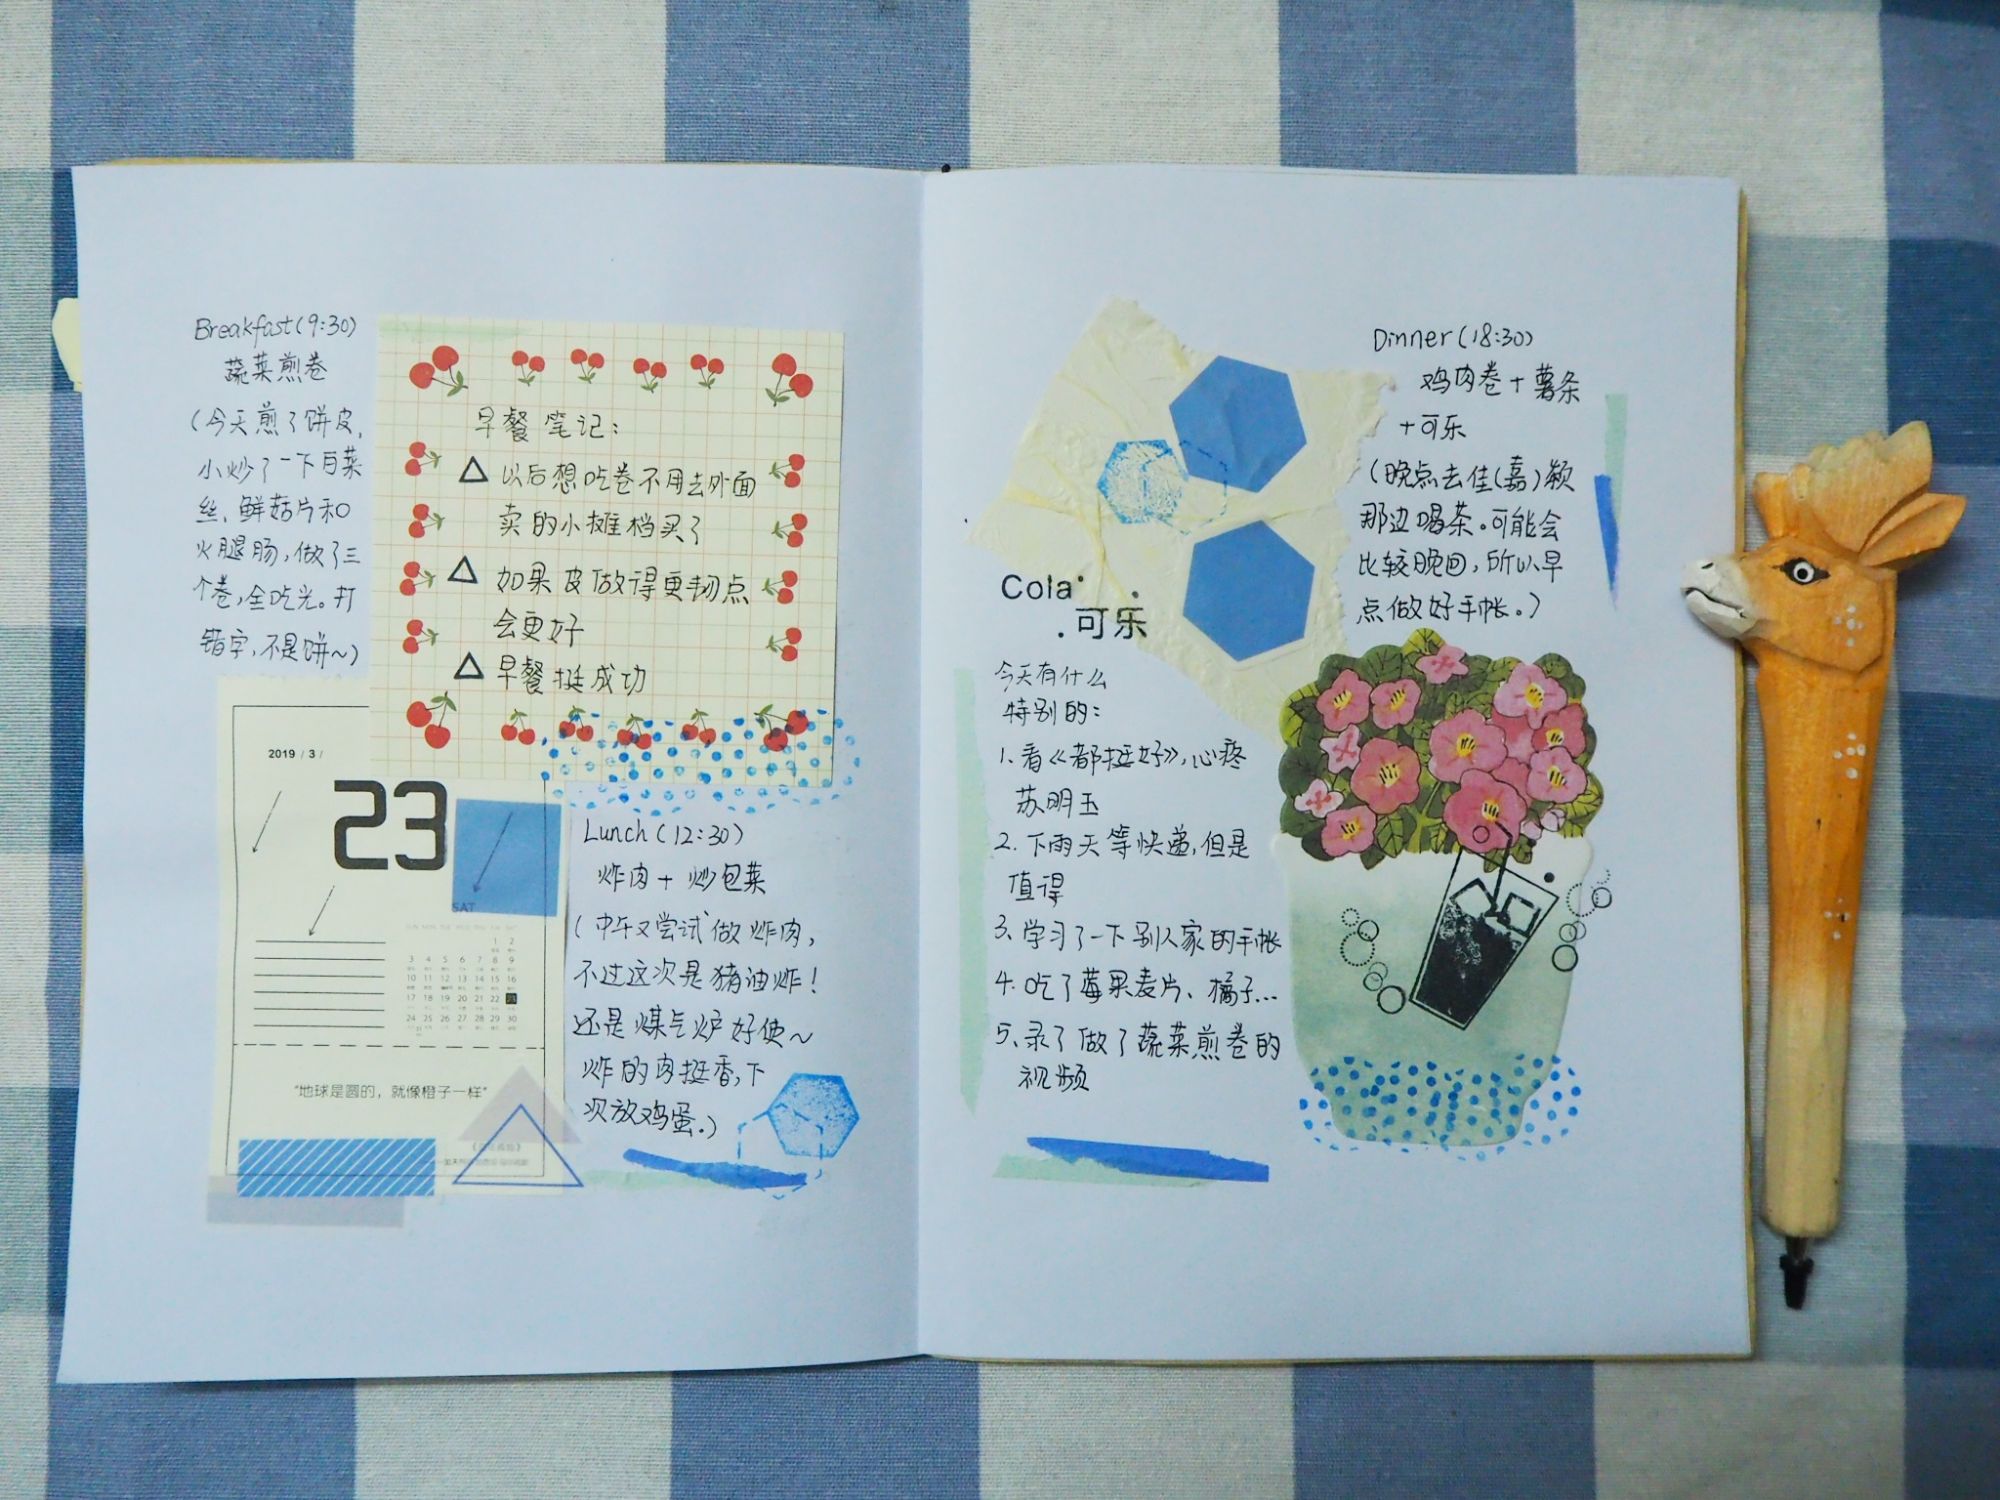 Breakfast(9:30)
蔬菜煎卷
(今天煎了饼皮,
小炒了一下白菜
丝、鲜菇片和
火腿肠,做了三
个卷,全吃光。打
错字,不是饼~)
早餐笔记:
△ 以后想吃卷不用去外面
卖的小摊档买了
△ 如果皮做得更韧点
会更好
△ 早餐挺成功
2019 / 3 /
23
SAT
SUN MON TUE WED THU FRI SAT
1 2
3 4 5 6 7 8 9
10 11 12 13 14 15 16
17 18 19 20 21 22
24 25 26 27 28 29 30
31
“地球是圆的，就像橙子一样”
Lunch(12:30)
炸肉+炒包菜
(中午又尝试做炸肉,
不过这次是猪油炸!
还是煤气炉好使~
炸的肉挺香,下
次放鸡蛋。)
Cola
可乐
今天有什么
特别的:
1、看《都挺好》,心疼
苏明玉
2、下雨天等快递,但是
值得
3、学习了一下别人家的手帐
4、吃了莓果麦片、橘子...
5、录了做了蔬菜煎卷的
视频
Dinner(18:30)
鸡肉卷+薯条
+可乐
(晚点去佳(嘉)颖
那边喝茶。可能会
比较晚回,所以早
点做好手帐。)